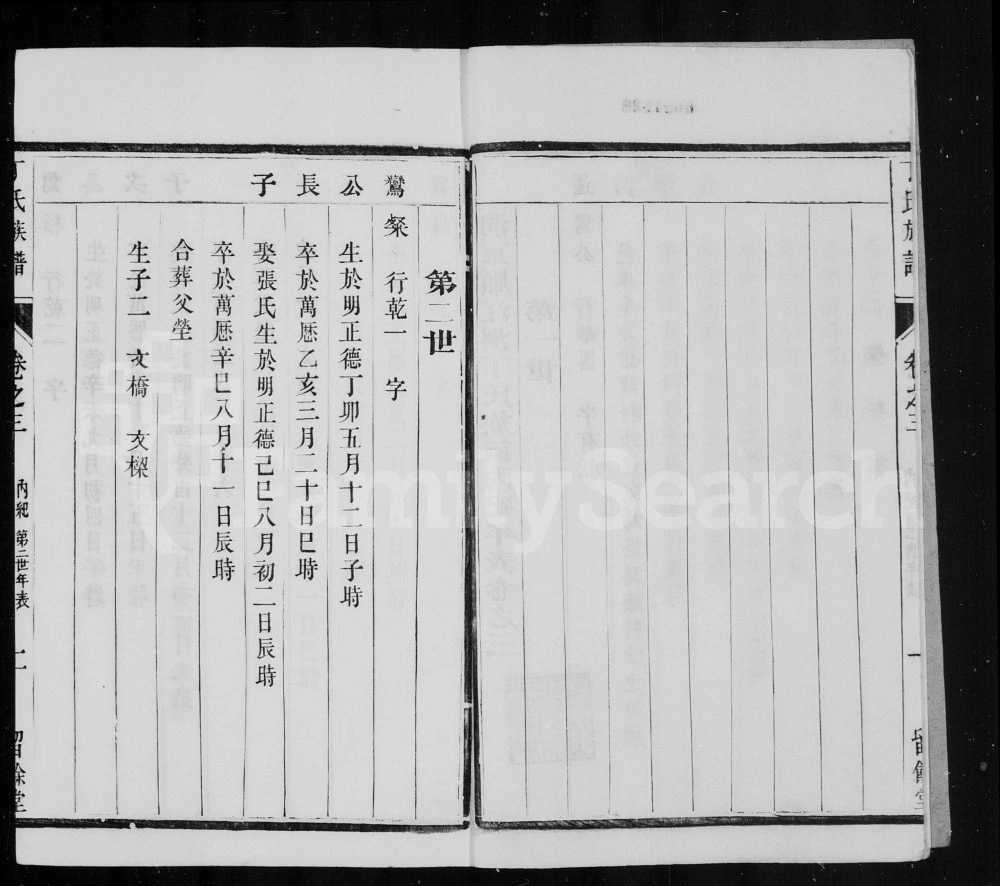 丁氏族譜
卷之三
一
留餘堂
第二世
鸞公長子
粲 行乾一 字
生於明正德丁卯五月十二日子時
卒於萬厯乙亥三月二十日巳時
娶張氏生於明正德己巳八月初二日辰時
卒於萬厯辛巳八月十一日辰時
合葬父塋
生子二 文橋 文樑
丁氏族譜
卷之三
內紀 第二世年表
二
留餘堂
FamilySearch